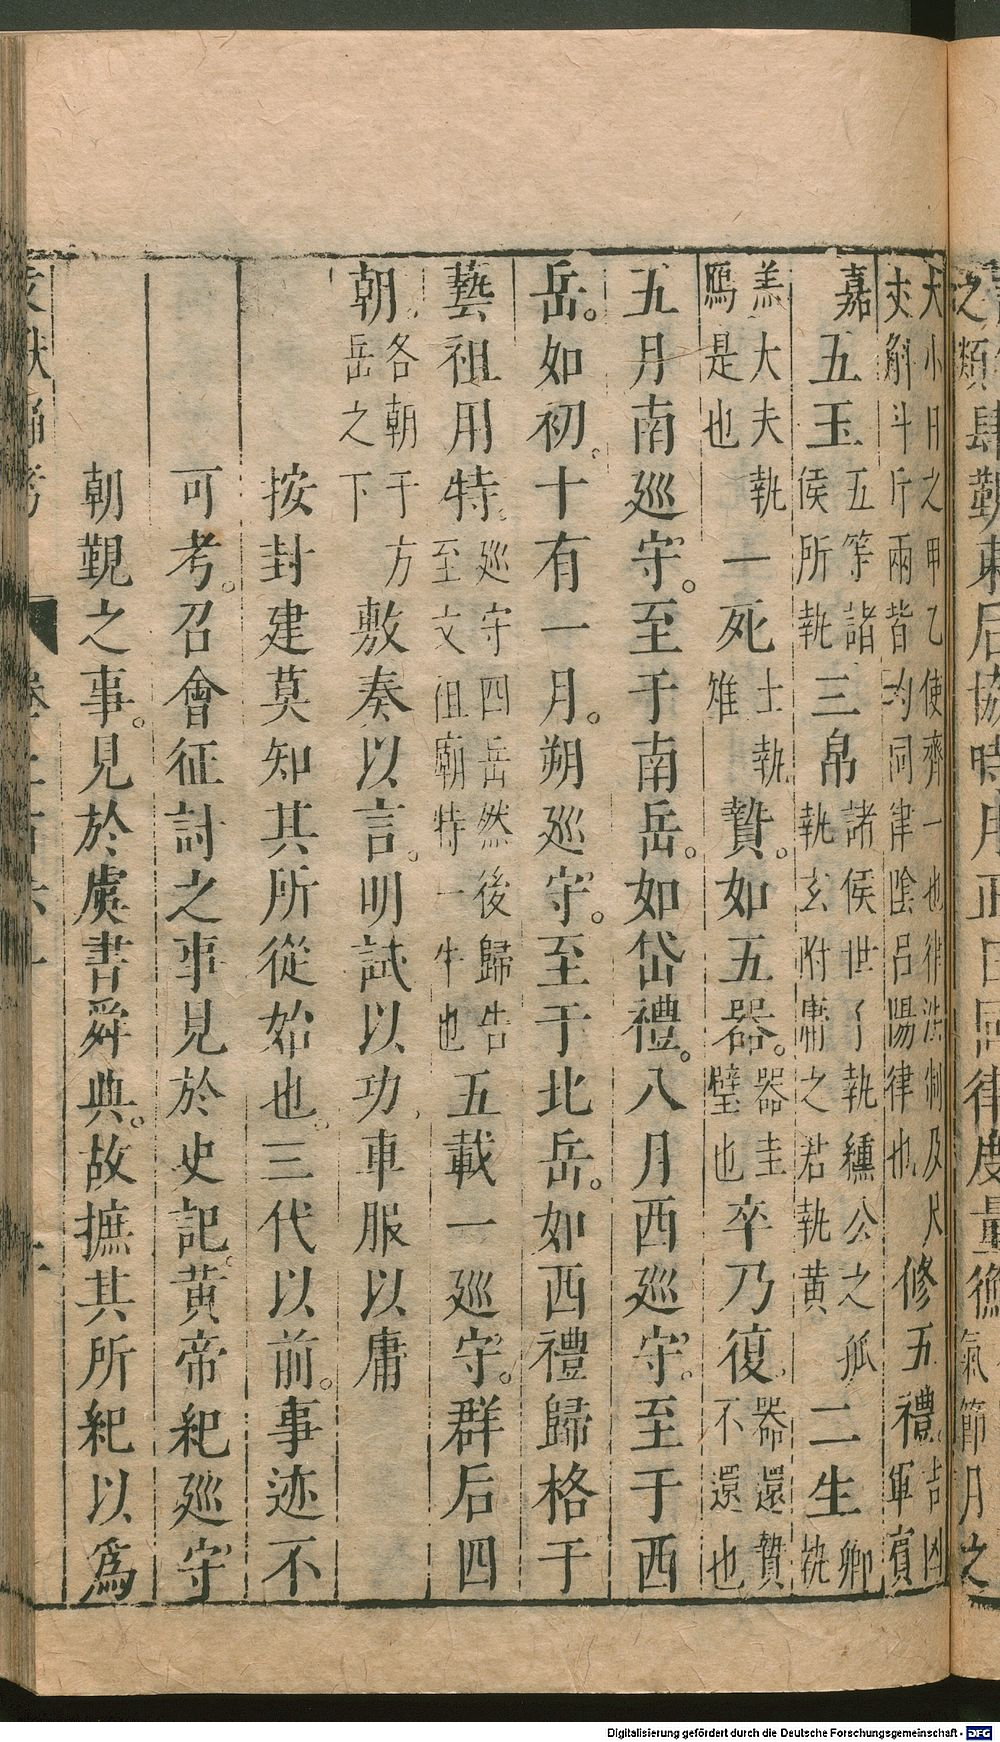 之類肆覲東后協時月正日同律度量衡氣節月之
大小日之甲乙使齊一也律法制及尺
丈斛斗斤兩皆均同律陰呂陽律也
修五禮吉凶軍賓
嘉五玉五等諸侯所執三帛諸侯世子執纁公之孤執玄附庸之君執黄二生卿執
羔大夫執鴈是也一死士執雉贄。如五器。器圭璧也卒乃復。器還贄不還也
五月南巡守。至于南岳。如岱禮。八月西巡守。至于西
岳。如初。十有一月。朔巡守。至于北岳。如西禮歸格于
藝祖用特。巡守四岳然後歸告至文祖廟特一牛也五載一巡守。群后四
朝。各朝于方岳之下敷奏以言。明試以功。車服以庸
按封建莫知其所從始也。三代以前。事迹不
可考。召會征討之事見於史記。黄帝紀巡守
朝覲之事。見於虞書舜典。故摭其所紀以爲
Digitalisierung gefördert durch die Deutsche Forschungsgemeinschaft - DFG